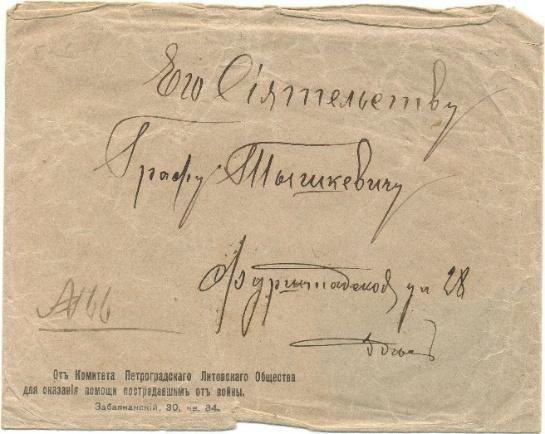 Его Сіятельству
Графу Тышкевичу
Фурштадской ул 28
№166
Отъ Комитета Петроградскаго Литовскаго Общества
для оказанія помощи пострадавшимъ отъ войны.
Забалканскій, 30, кв. 34.